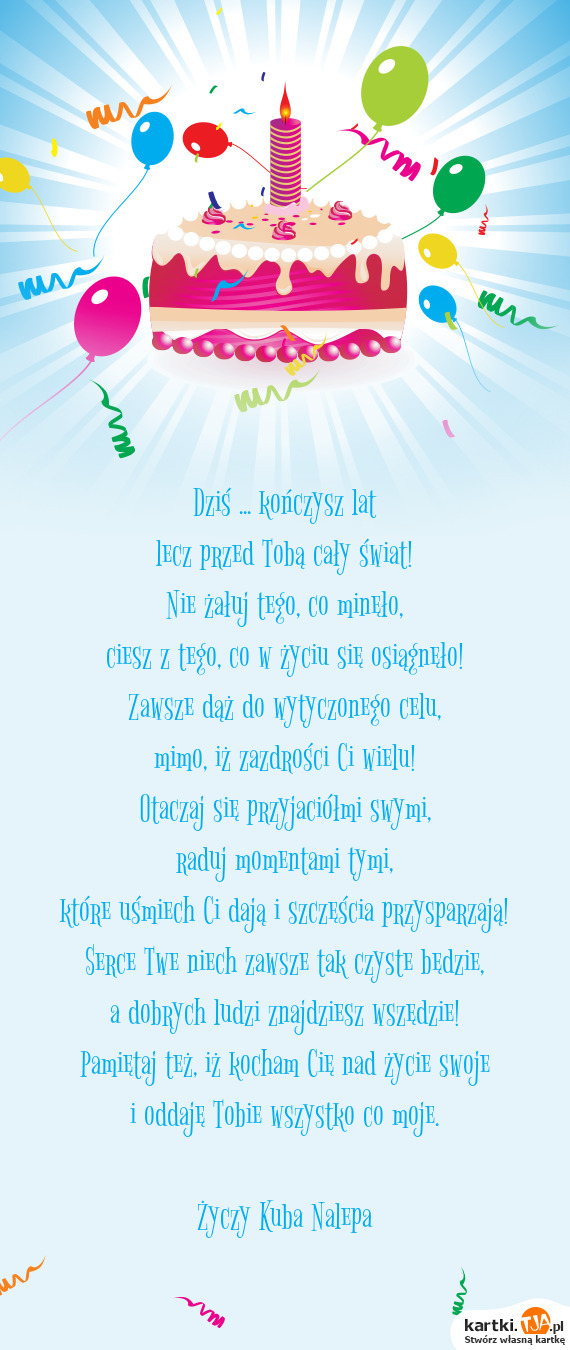 Dziś ... kończysz lat
lecz przed Tobą cały świat!
Nie żałuj tego, co minęło,
ciesz z tego, co w życiu się osiągnęło!
Zawsze dąż do wytyczonego celu,
mimo, iż zazdrości Ci wielu!
Otaczaj się przyjaciółmi swymi,
raduj momentami tymi,
które uśmiech Ci dają i szczęścia przysparzają!
Serce Twe niech zawsze tak czyste będzie,
a dobrych ludzi znajdziesz wszędzie!
Pamiętaj też, iż kocham Cię nad życie swoje
i oddaję Tobie wszystko co moje.
Życzy Kuba Nalepa
kartki.TJA.pl
Stwórz własną kartkę